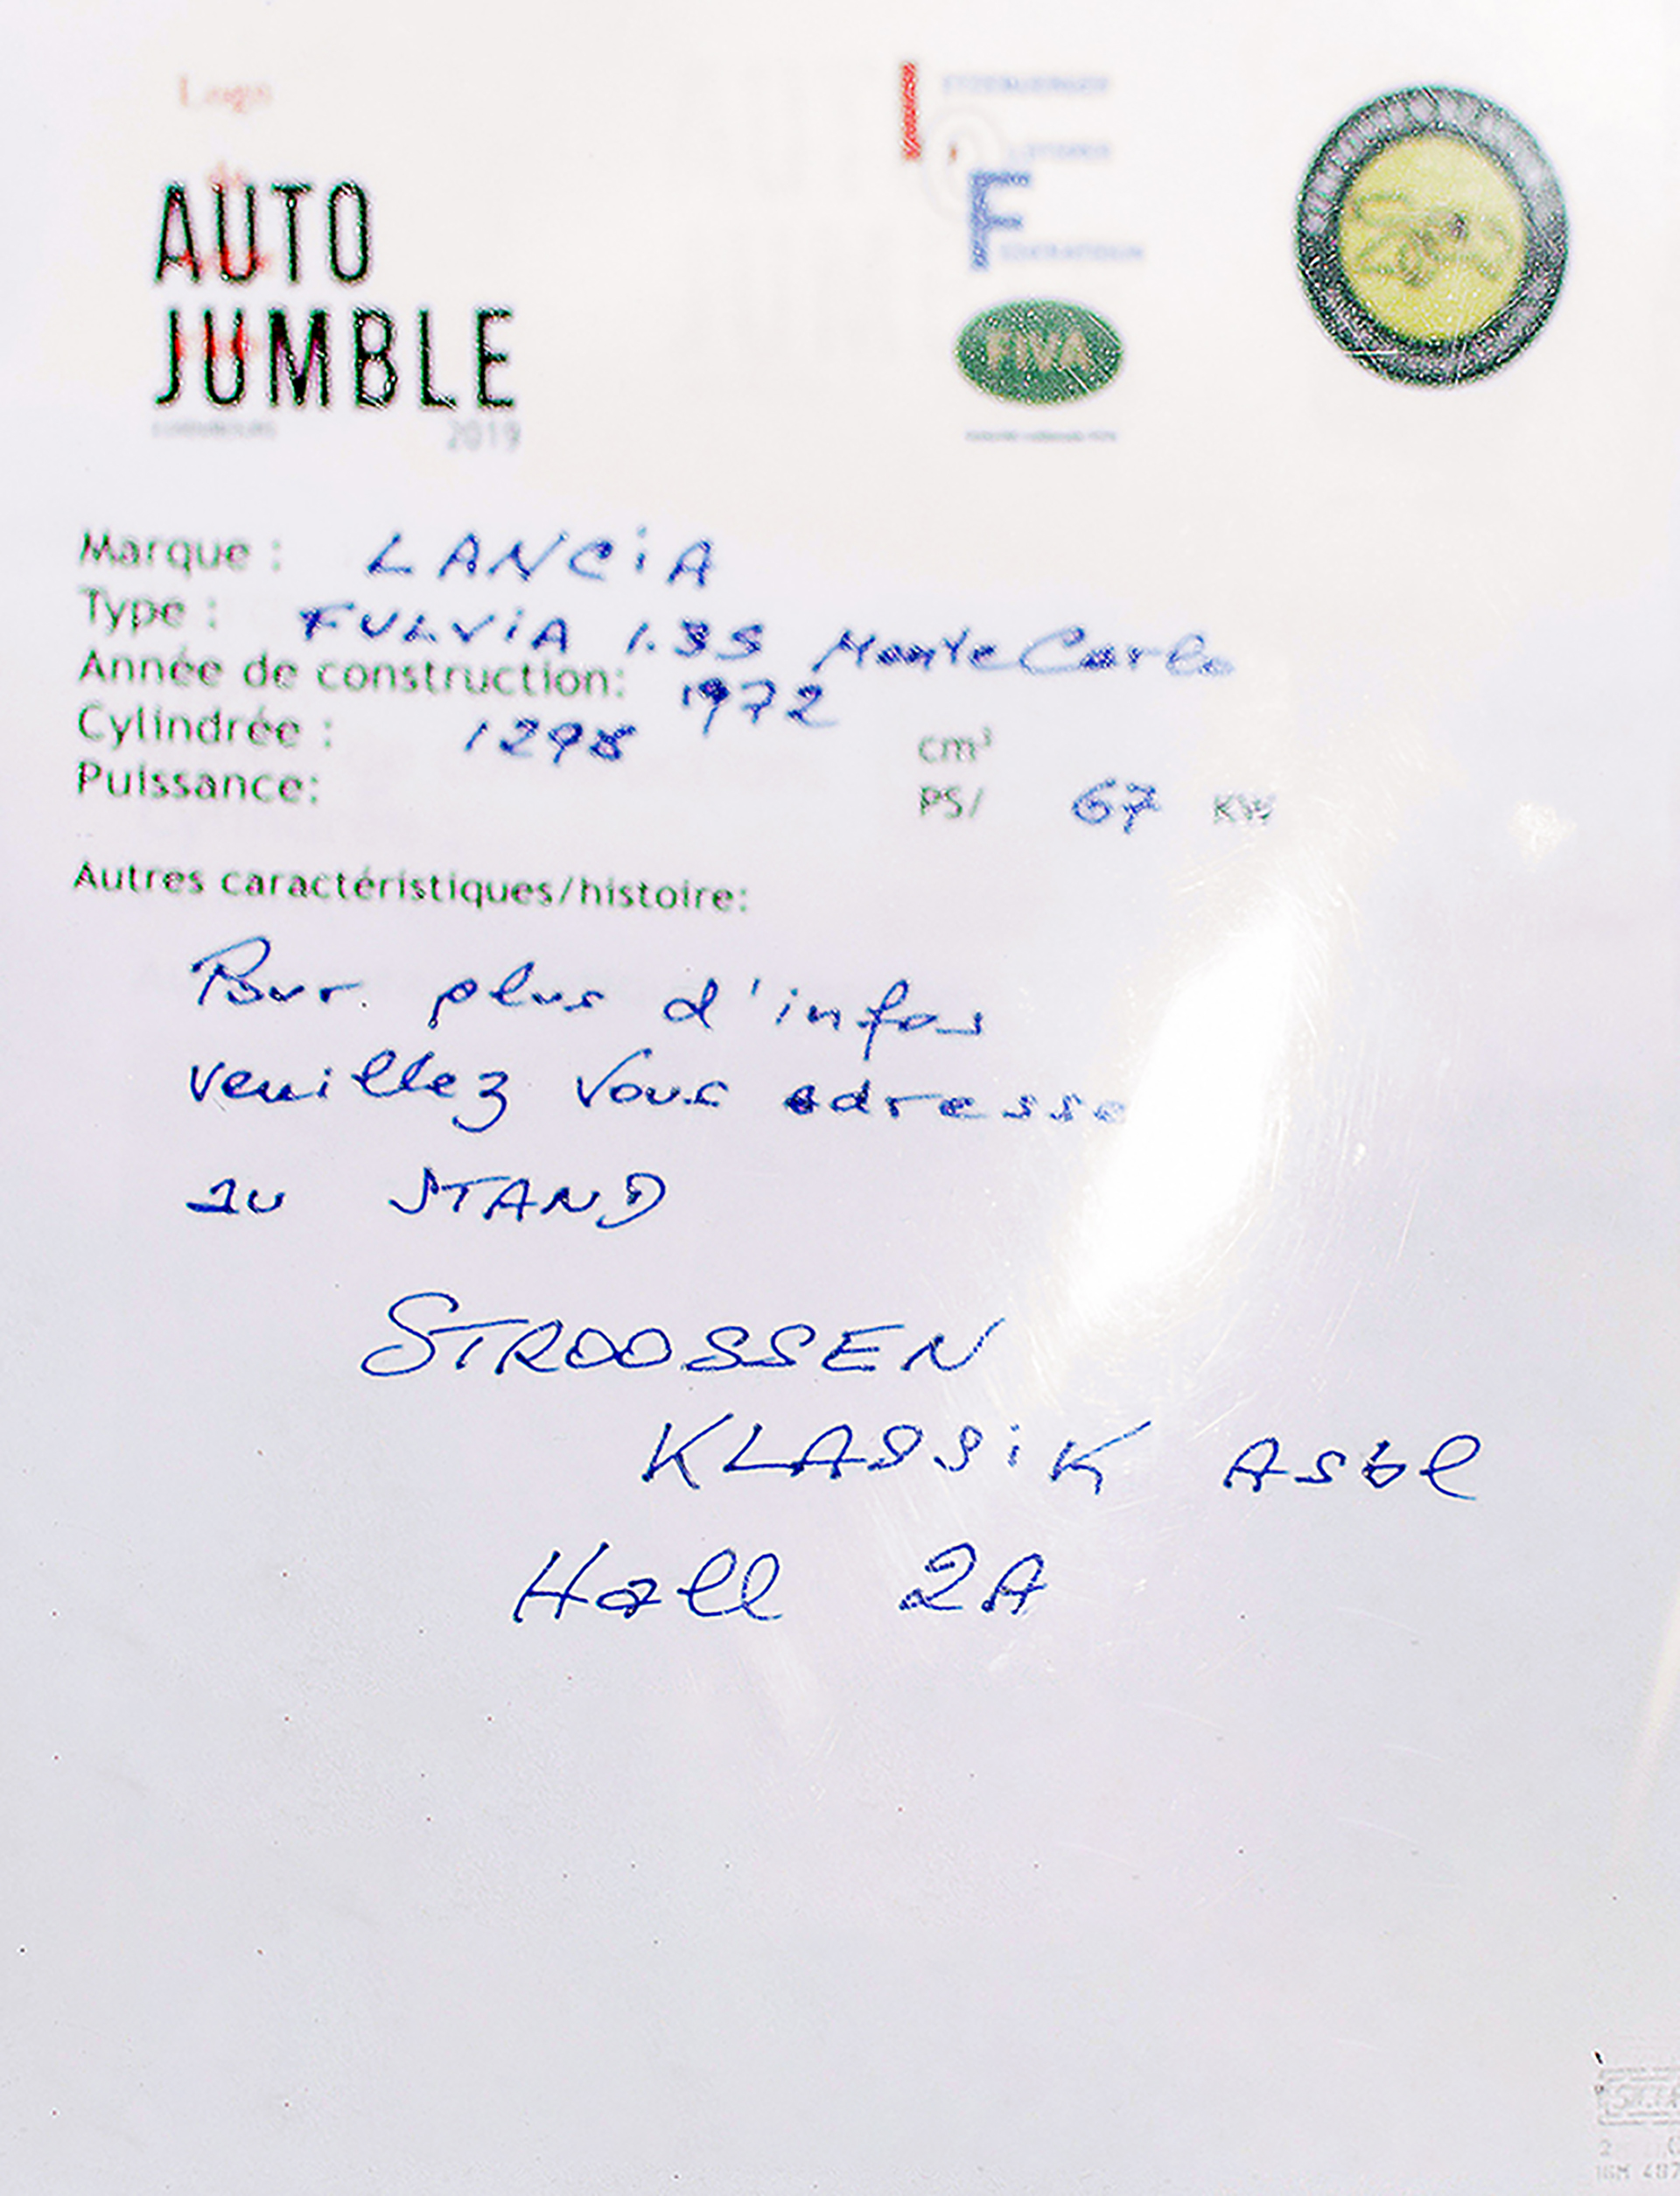 Logo
AUTO
JUMBLE
2019
ETZEBUERGER
F
FIVA
Marque : LANCiA
Type : FULViA 1.3S Monte Carlo
Année de construction: 1972
Cylindrée : 1298 cm³
Puissance: PS/ 67 KW
Autres caractéristiques/histoire:
Pour plus d'infos
veuillez vous adresse
au STAND
STROOSSEN
KLASSiK Asbl
Hall 2A